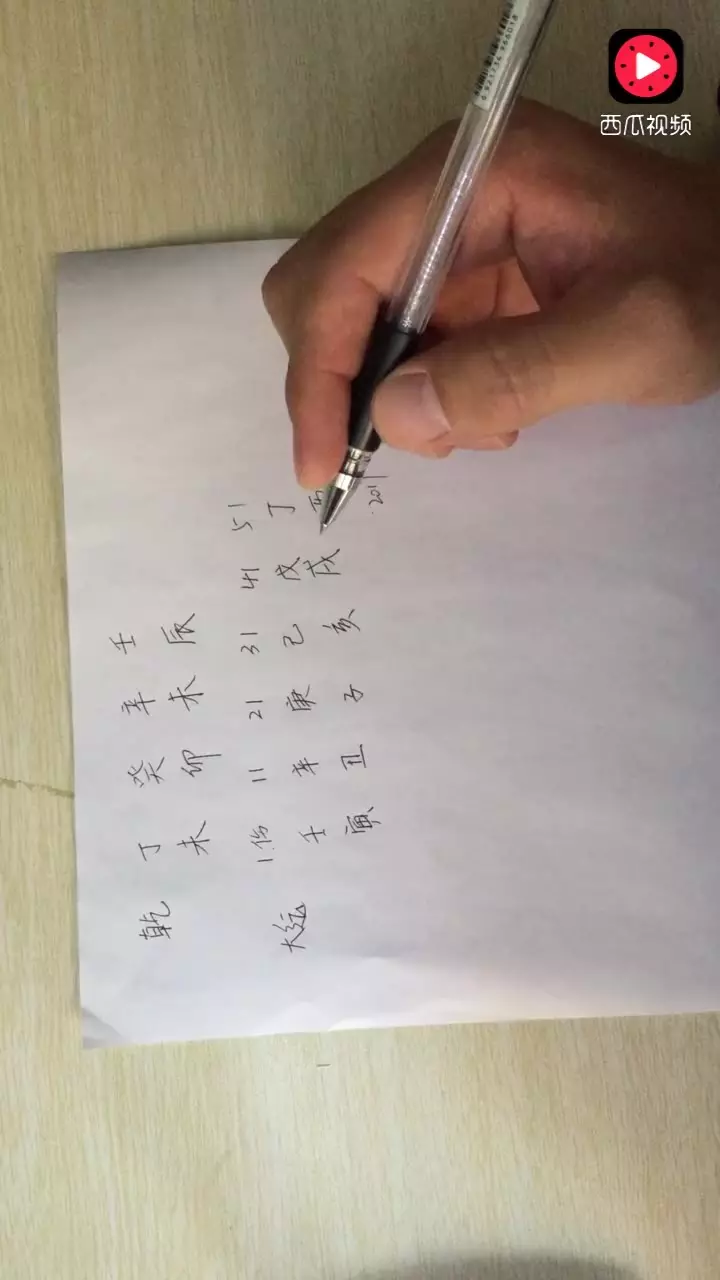 西瓜视频
乾 丁 癸 辛 壬
未 卯 未 辰
大运 11 21 31 41 51
壬 辛 庚 己 戊 丁
寅 丑 子 亥 戌
201